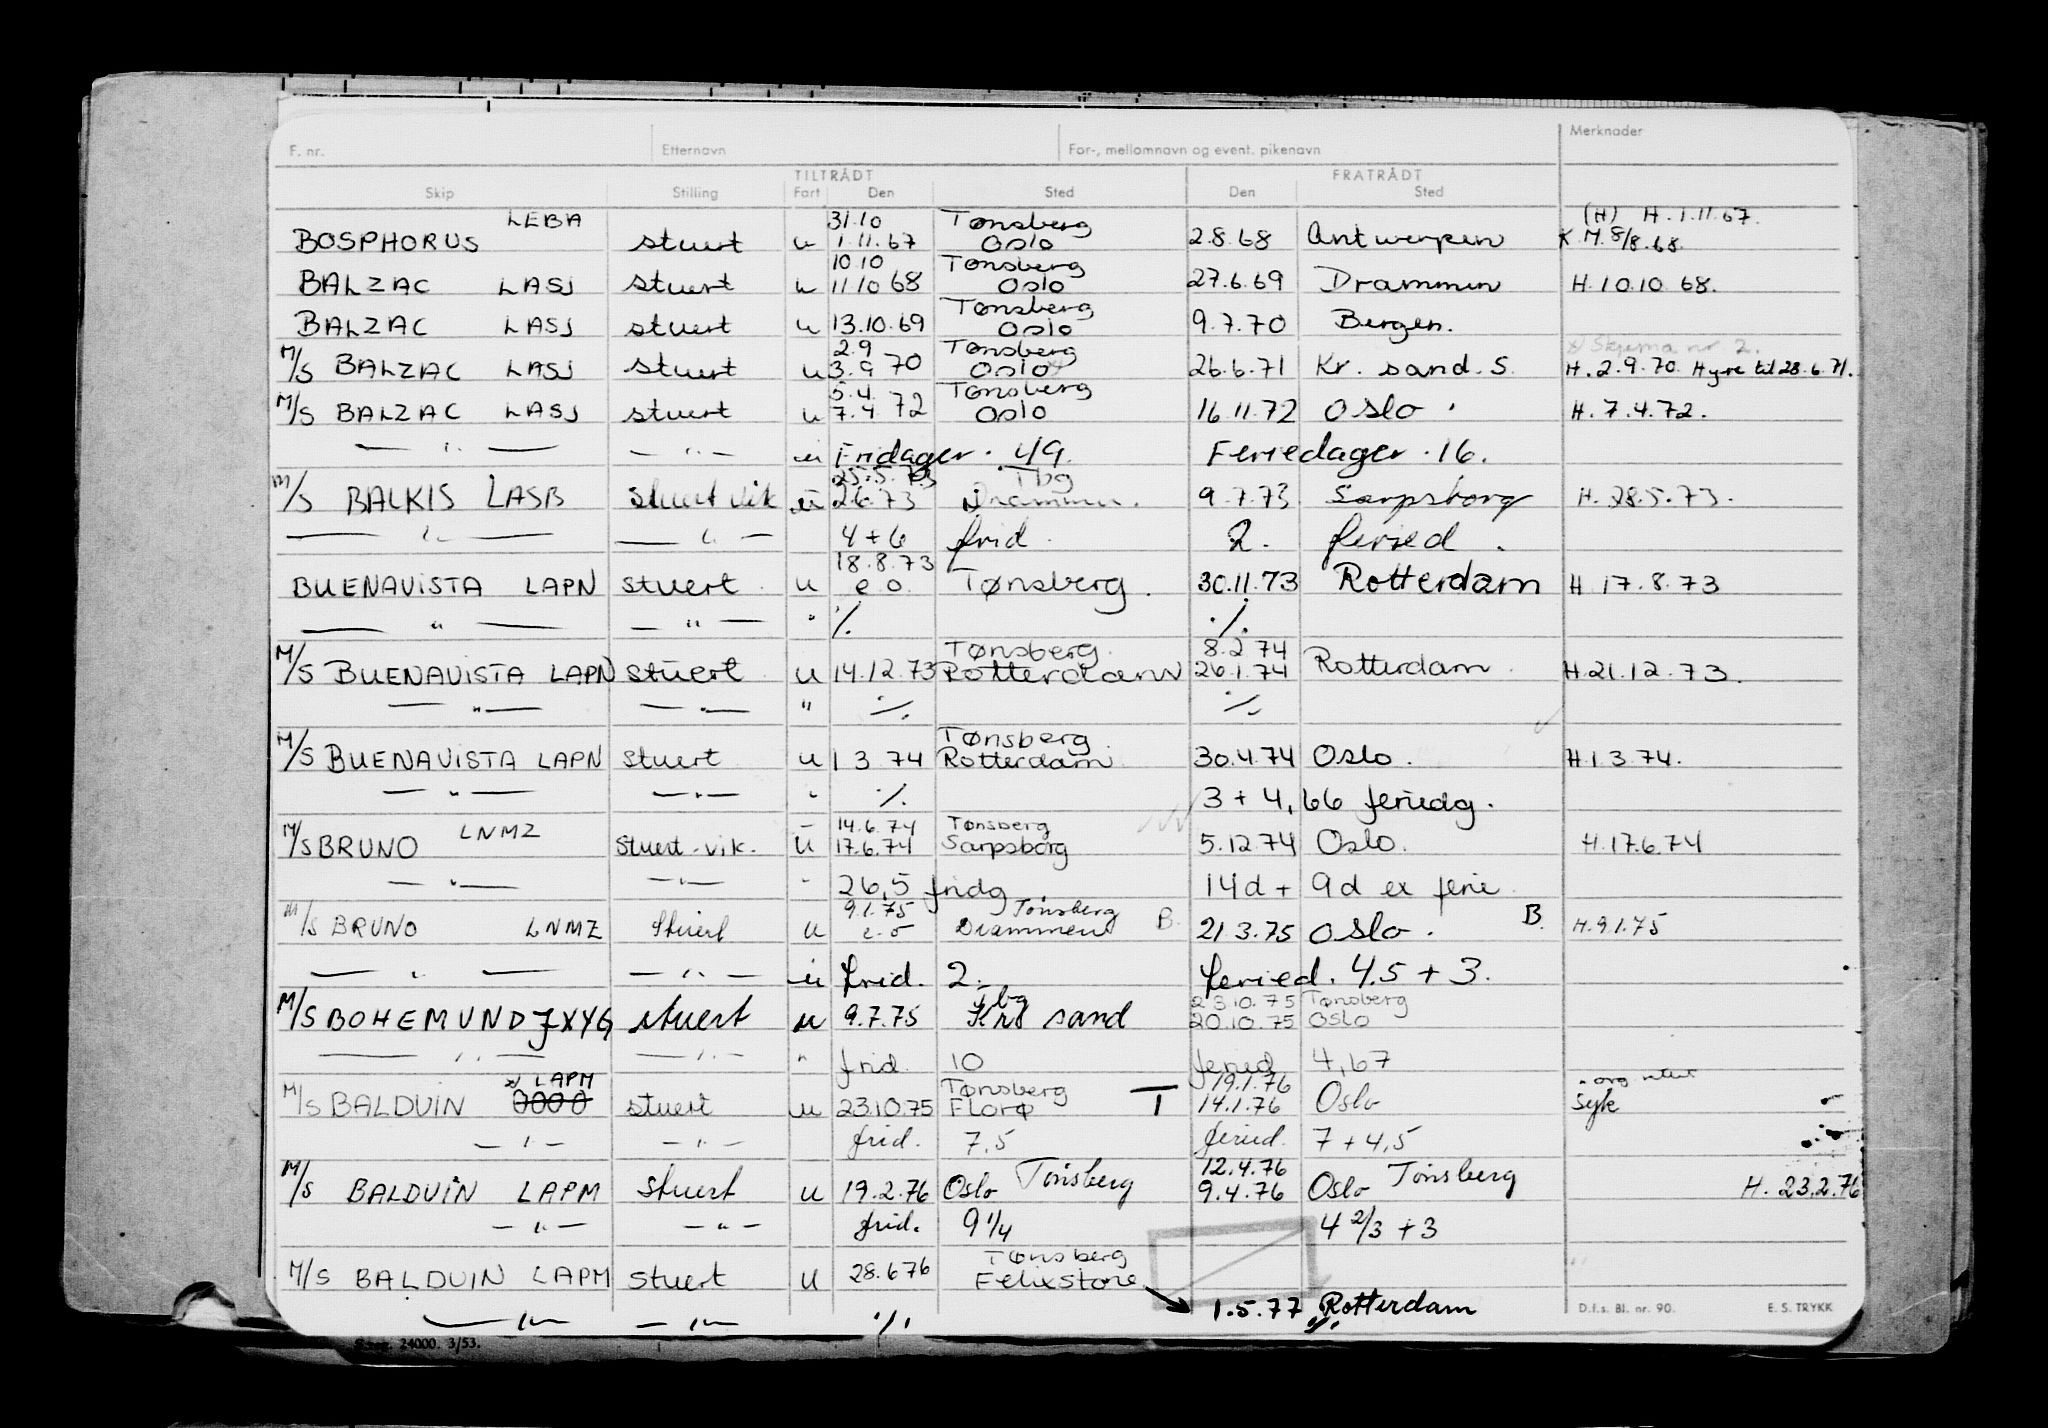 F. nr. Etternavn For-, mellomnavn og event. pikenavn Merknader
TILTRÅDT FRATRÅDT
Skip Stilling Fart Den Sted Den Sted
LEBA 31.10 Tønsberg (H) H. 1.11.67.
BOSPHORUS stuert u 1.11.67 Oslo 2.8.68 Antwerpen K.M. 8/8.68.
10.10 Tønsberg
BALZAC LASJ stuert u 11 10 68 Oslo 27.6.69 Drammen H. 10.10 68.
Tønsberg
BALZAC LASJ stuert u 13.10.69 Oslo 9.7.70 Bergen.
2.9 Tønsberg x) Skjema nr 2.
M/S BALZAC LASJ stuert u 3.9 70 Oslo x) 26.6.71 Kr. sand. S. H. 2.9.70. Hyre til 28.6.71.
5.4. Tønsberg
M/S BALZAC LASJ stuert u 7.4. 72 Oslo 16.11.72 Oslo . H. 7.4.72.
— " — — " — u Fridager. 49. Feriedager. 16.
25.5.73 Tbg
M/S BALKIS LASB stuert vik u 2.6.73 Drammen. 9.7.73. Sarpsborg H. 28.5.73.
— " — — " — 4+6 frid. 2. feried.
18.8.73
BUENAVISTA LAPN stuert u e o. Tønsberg. 30.11.73 Rotterdam H. 17.8.73
— " — — " — " ./. ./.
Tønsberg. 8.2 74
M/S BUENAVISTA LAPN stuert u 14.12.73 Rotterdam 26.1.74 Rotterdam. H.21.12.73.
— " — — " — " ./. ./.
Tønsberg.
M/S BUENAVISTA LAPN stuert u 1 3 74 Rotterdam 30.4.74 Oslo. H.1.3.74.
— " — — " — " ./. 3 + 4,66 feriedg.
LNMZ 14.6.74 Tønsberg
M/S BRUNO stuert-vik. u 17.6.74 Sarpsborg 5.12.74 Oslo. H.17.6.74
— " — — " — " 26,5 fridg 14d + 9d ex ferie.
9.1.75 Tønsberg
M/S BRUNO LNMZ stuert u e.o Drammen B. 21.3.75 Oslo. B. H.9.1.75
— " — — " — u frid. 2. feried. 4.5 + 3.
Tbg 23.10.75 Tønsberg
M/S BOHEMUND JXYG stuert u 9.7.75 Kr sand 20.10.75 Oslo
— " — — " — " frid. 10 feried 4,67
x) LAPM Tønsberg 19.1.76
M/S BALDUIN stuert u 23.10.75 Florø T 14.1.76 Oslo Syk
— " — — " — frid. 7,5 feried. 7+4,5
12.4.76
M/S BALDUIN LAPM stuert u 19.2.76 Oslo Tønsberg 9.4.76 Oslo Tønsberg H. 23.2.76
— " — — " — frid. 9 1/4 4 2/3 + 3
Tønsberg
M/S BALDUIN LAPM stuert u 28.6 76 Felixstowe
— " — — " — ./. 1.5.77 Rotterdam
./.
D.f.s. Bl. nr. 90. E. S. TRYKK
24000. 3/53.